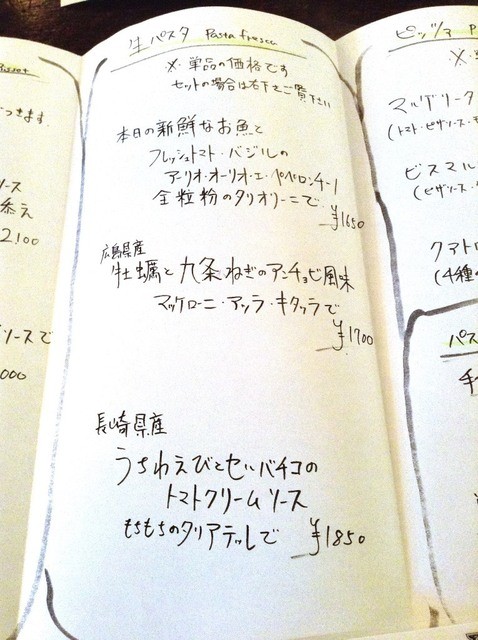 生パスタ Pasta fresca
※単品の価格です
セットの場合は右下をご覧下さい
本日の新鮮なお魚と
フレッシュトマト・バジルの
アリオ・オーリオ・エ・ペペロンチーノ
全粒粉のタリオリーニで
¥1650
広島県産
牡蠣と九条ねぎのアンチョビ風味
マッケローニ・アッラ・キタッラで
¥1700
長崎県産
うちわえびとセルバチコの
トマトクリームソース
もちもちのタリアテッレで ¥1850
つきます。
ース
添え
2,100
ソースで
000
ピッツァ P
※
マルゲリータ
(トマト・ピザソース・モ
ビスマル
(ピザソース・
クアト
(4種の
パス
手